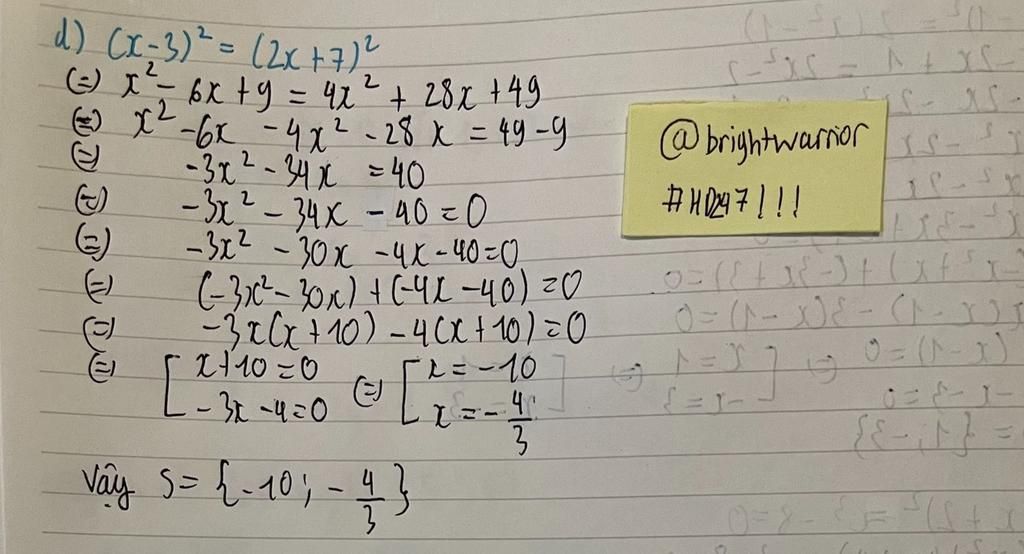 d) (x-3)² = (2x+7)²
(=) x² - 6x + 9 = 4x² + 28x + 49
(=) x² - 6x - 4x² - 28x = 49 - 9
(=) -3x² - 34x = 40
(=) -3x² - 34x - 40 = 0
(=) -3x² - 30x - 4x - 40 = 0
(=) (-3x² - 30x) + (-4x - 40) = 0
(=) -3x(x + 10) - 4(x + 10) = 0
(=) [ x + 10 = 0 (=) [ x = -10
-3x - 4 = 0 x = -4/3
Vậy S = {-10; -4/3}
@brightwarrior
#HD247!!!